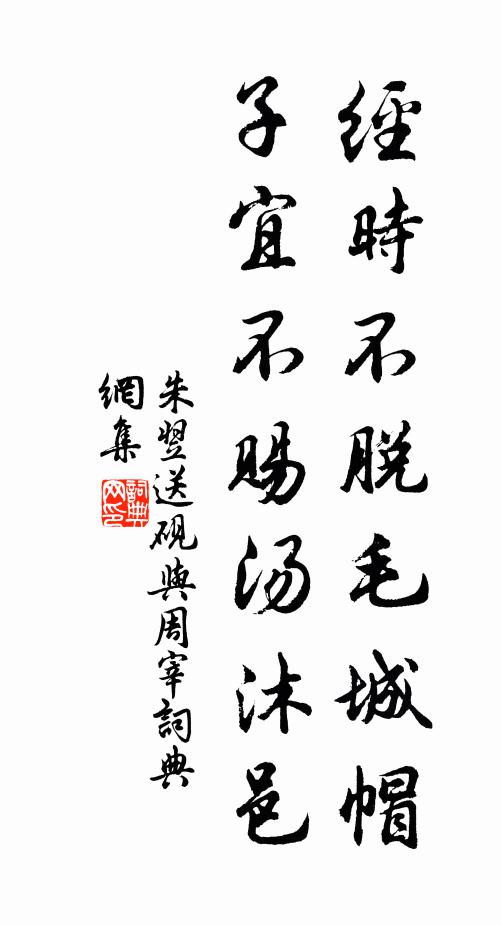 經時不脫毛城帽
子宜不賜湯沐邑
朱翌送硯與周宰詞典
網集
詞典網印